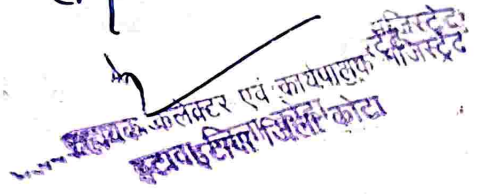 सहायक कलेक्टर एवं कार्यपालक मजिस्ट्रेट
इटावा जिला कोटा